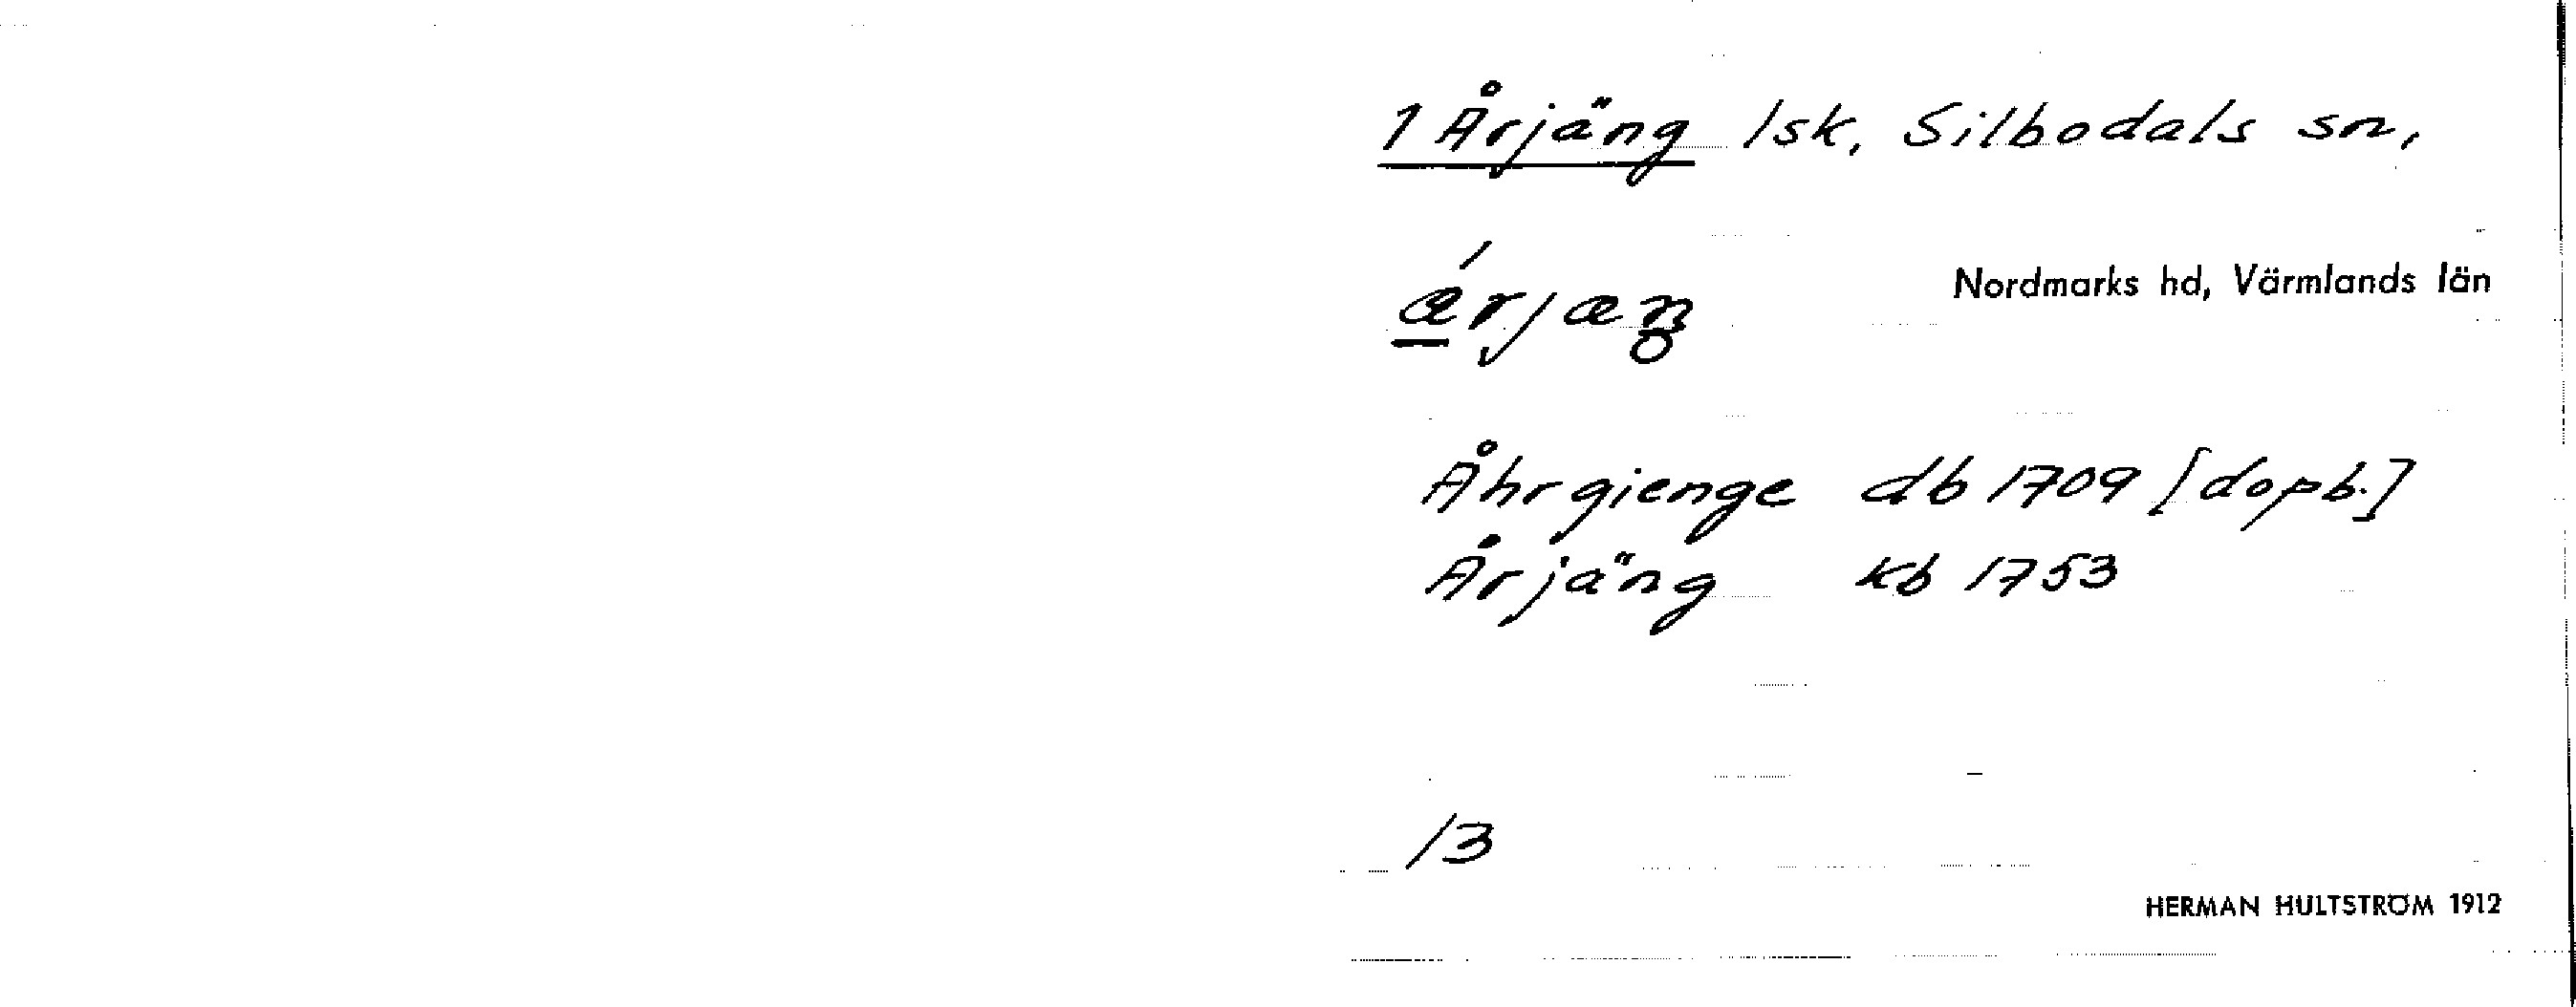 1 Årjäng lsk, Silbodals sn,
Nordmarks hd, Värmlands län
Åhrgienge db 1709 [dopb.]
Årjäng kb 1753
/3
HERMAN HULTSTRÖM 1912